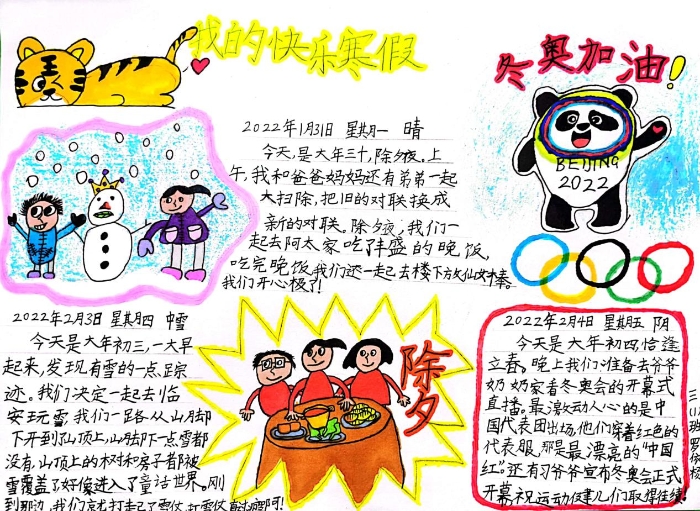 我的快乐寒假
冬奥加油!
BEIJING
2022
2022年1月31日 星期一 晴
今天,是大年三十,除夕夜。上
午,我和爸爸妈妈还有弟弟一起
大扫除,把旧的对联换成
新的对联。除夕夜,我们一
起去阿太家吃丰盛的晚饭,
吃完晚饭,我们还一起去楼下放仙女棒。
我们开心极了!
2022年2月3日 星期四 中雪
今天是大年初三,一大早
起来,发现有雪的一点踪
迹。我们决定一起去临
安玩雪,我们一路从山脚
下开到了山顶上,山脚下一点雪都
没有,山顶上的树和房子都被
雪覆盖了好像进入了童话世界。刚
到那边,我们就打起了雪仗,打雪仗
除夕
2022年2月4日 星期五 阴
今天是大年初四,恰逢
立春。晚上我们准备去爷爷
奶奶家看冬奥会的开幕式
直播。最激动人心的是中
国代表团出场,他们穿着红色的
代表服,那是最漂亮的"中国
红"还有习爷爷宣布冬奥会正式
开幕,祝运动健儿们取得佳绩!
三
(1)
班